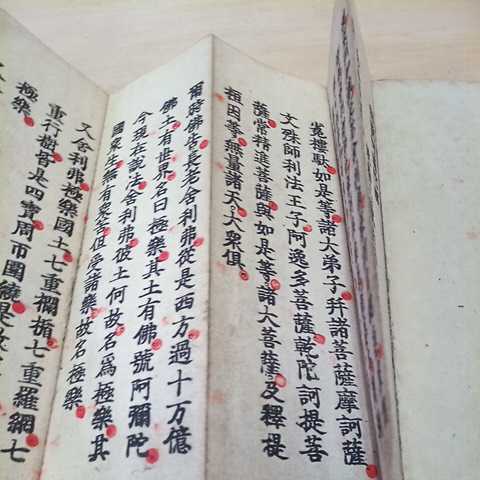 㝹樓馱如是等諸大弟子并諸菩薩摩訶薩
文殊師利法王子阿逸多菩薩乾陀訶提菩
薩常精進菩薩與如是等諸大菩薩及釋提
桓因等無量諸天大衆俱
爾時佛告長老舍利弗從是西方過十万億
佛土有世界名曰極樂其土有佛號阿彌陀
今現在說法舍利弗彼土何故名爲極樂其
國衆生無有衆苦但受諸樂故名極樂
又舍利弗極樂國土七重欄楯七重羅網七
重行樹皆是四寶周帀圍繞是故
極樂